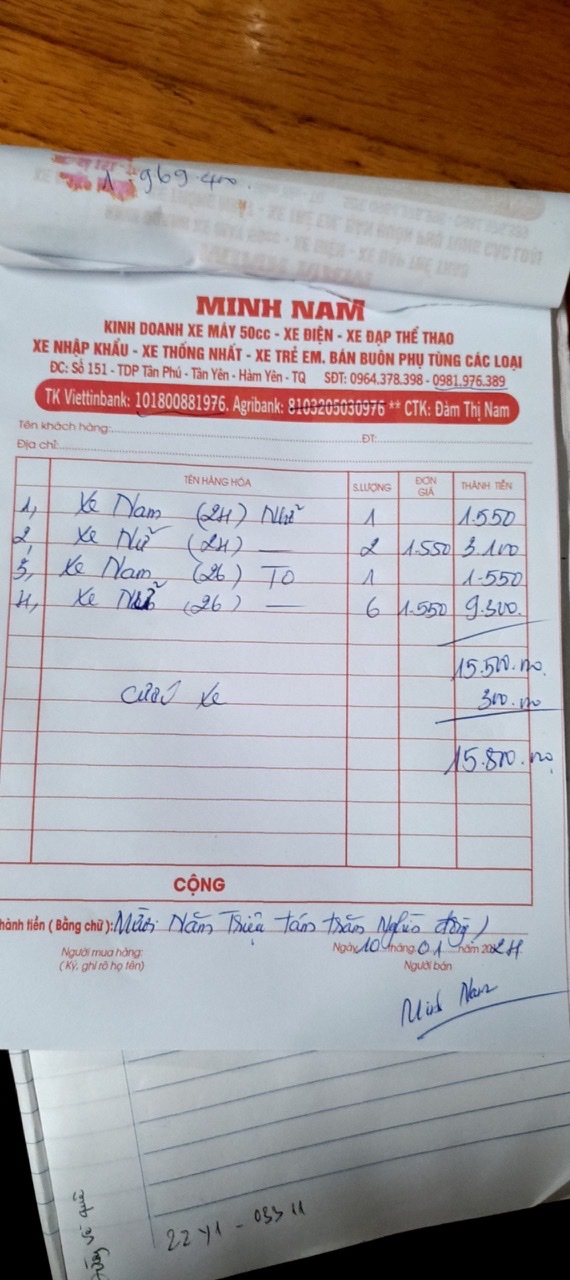 1.969.400.
MINH NAM
KINH DOANH XE MÁY 50cc - XE ĐIỆN - XE ĐẠP THỂ THAO
XE NHẬP KHẨU - XE THỐNG NHẤT - XE TRẺ EM, BÁN BUÔN PHỤ TÙNG CÁC LOẠI
ĐC: Số 151 - TDP Tân Phú - Tân Yên - Hàm Yên - TQ SĐT: 0964.378.398 - 0981.976.389
TK Viettinbank: 101800881976. Agribank: 8103205030976 ** CTK: Đàm Thị Nam
Tên khách hàng: ĐT:
Địa chỉ:
TÊN HÀNG HÓA S.LƯỢNG ĐƠN GIÁ THÀNH TIỀN
1, Xe Nam (24) Nhỡ 1 1.550
2, Xe Nữ (24) — 2 1.550 3.100
3, Xe Nam (26) TO 1 1.550
4, Xe Nữ (26) — 6 1.550 9.300.
15.500.000
xe 300.000
15.800.000
CỘNG
Thành tiền (Bằng chữ): Mười Năm Triệu tám trăm Nghìn đồng)
Ngày 10 tháng 01 năm 2024
Người mua hàng: Người bán
(Ký, ghi rõ họ tên)
Minh Nam
22 Y1 - 033 11
về quê